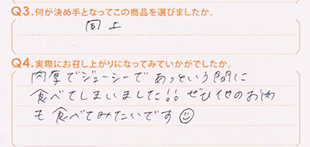 Q3.何が決め手となってこの商品を選びましたか。
同上
Q4.実際にお召し上がりになってみていかがでしたか。
肉厚でジューシーであっという間に
食べてしまいました!! ぜひ他のお肉
も食べてみたいです